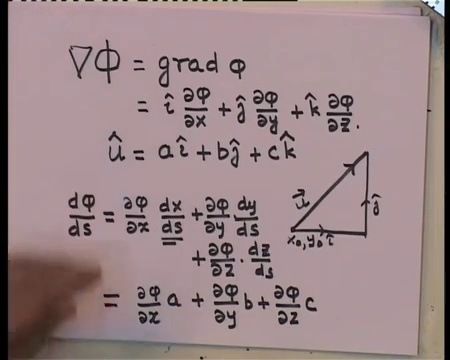 ∇Φ = grad φ
= î ∂φ/∂x + ĵ ∂φ/∂y + k̂ ∂φ/∂z.
û = aî + bĵ + ck̂
dφ/ds = ∂φ/∂x dx/ds + ∂φ/∂y dy/ds
+ ∂φ/∂z . dz/ds
= ∂φ/∂x a + ∂φ/∂y b + ∂φ/∂z c
u⃗
ĵ
x₀, y₀ î